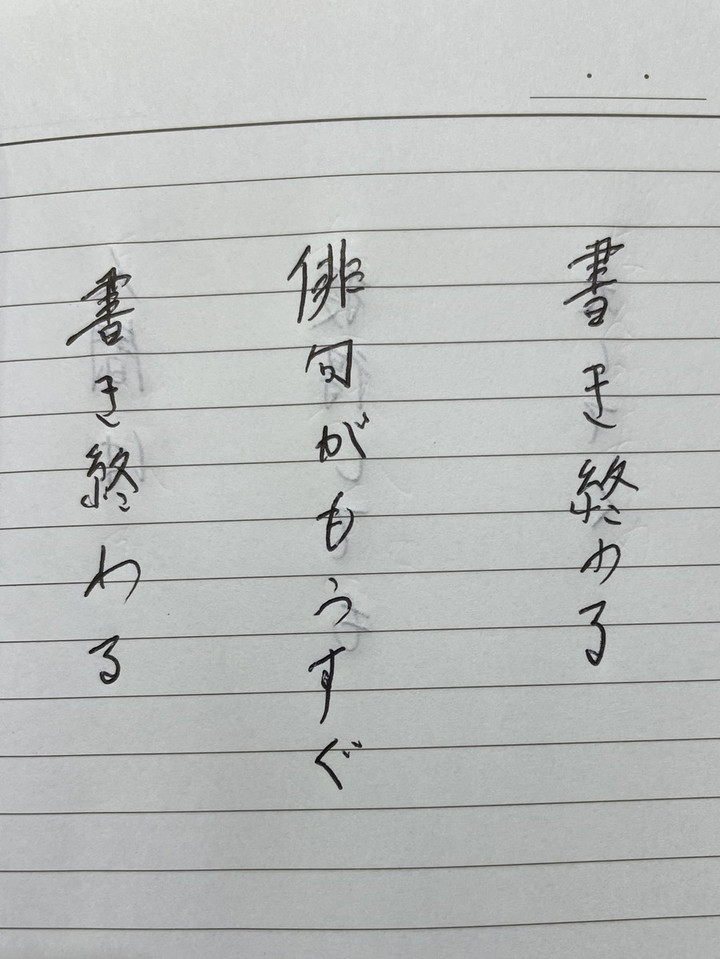 書き終わる
俳句がもうすぐ
書き終わる